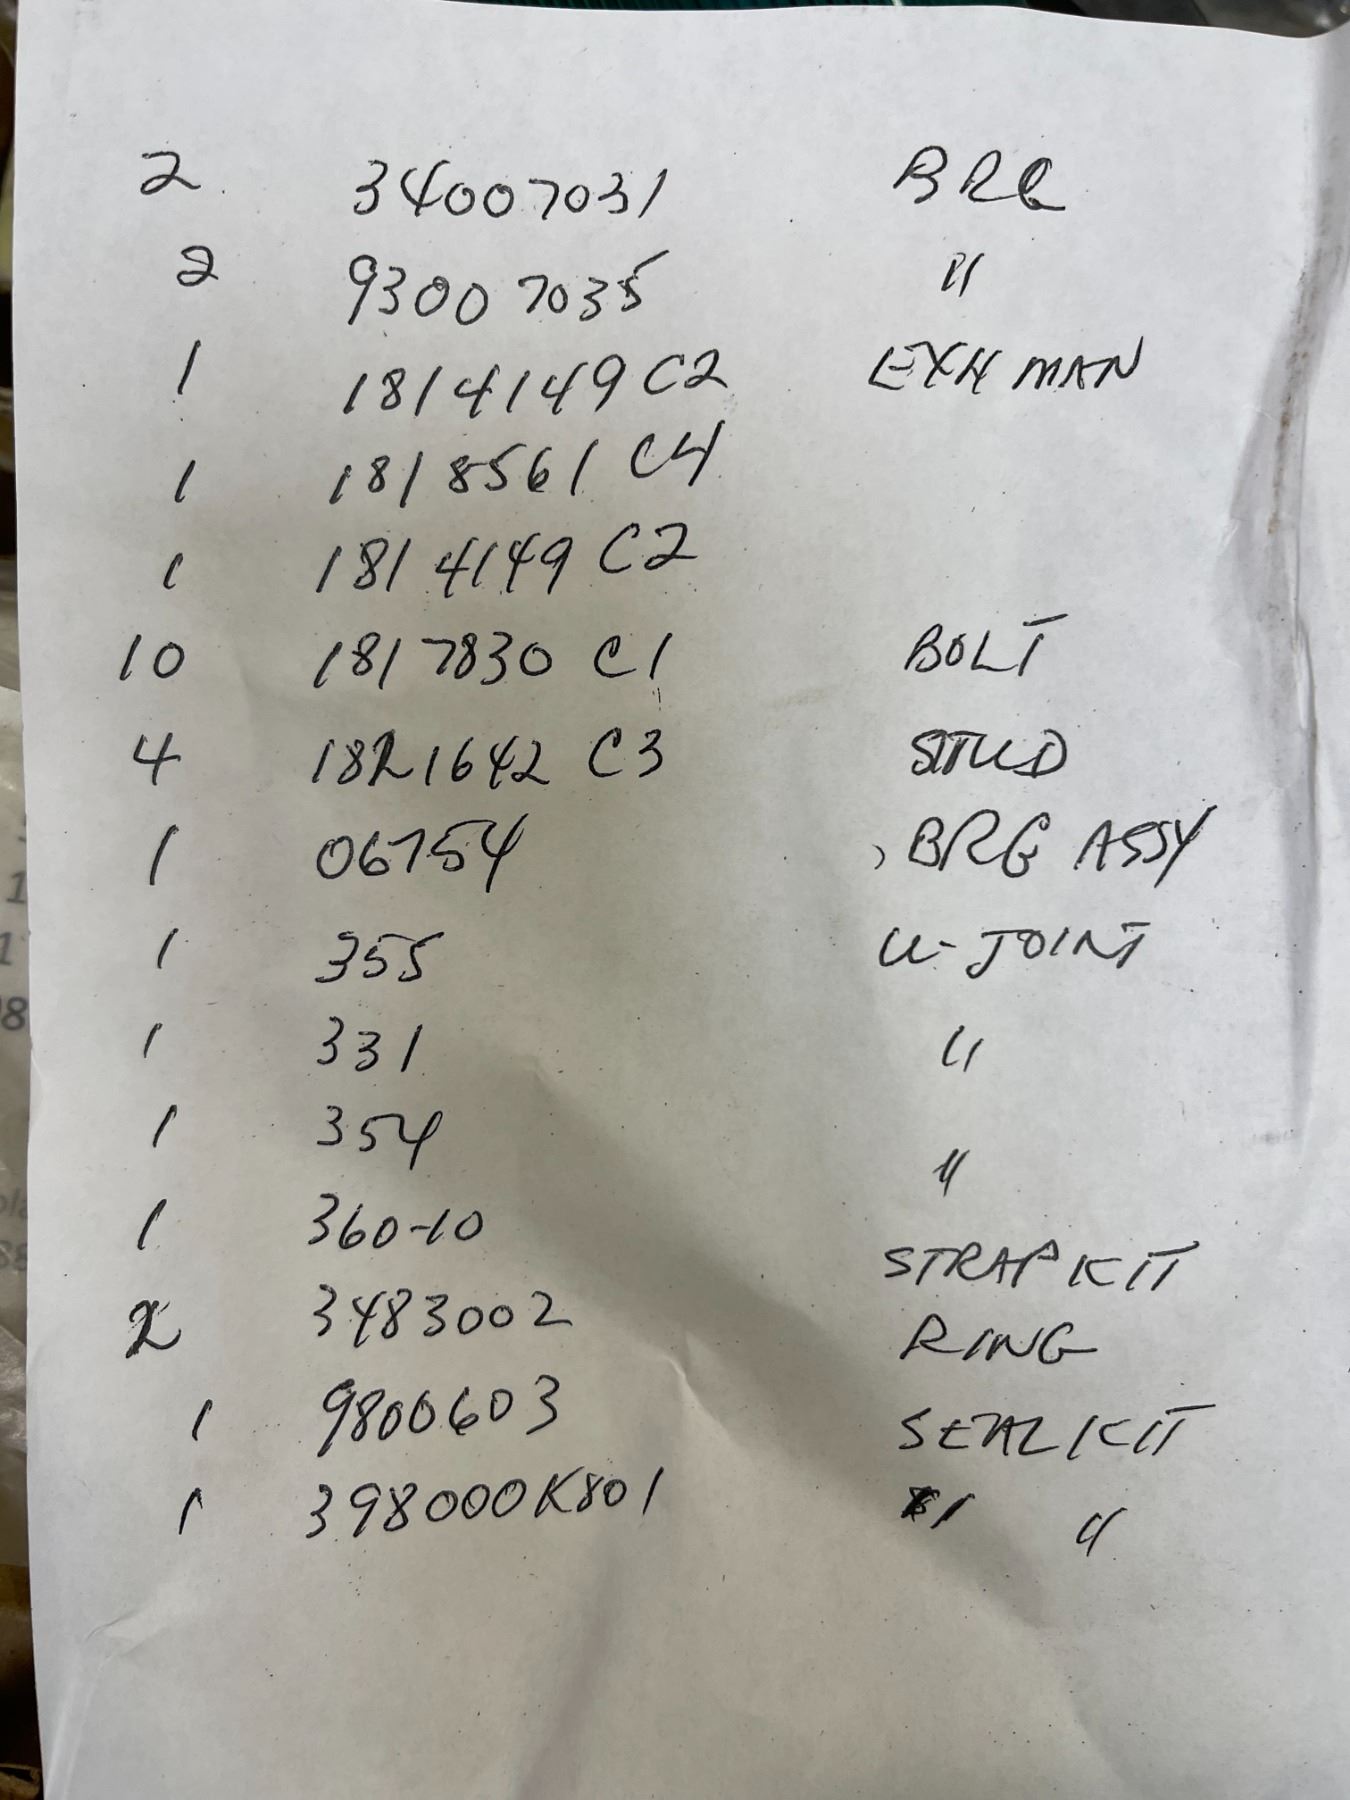 2 34007031 BRG
2 93007035 "
1 1814149 C2 EXH MAN
1 1818561 C4
1 1814149 C2
10 1817830 C1 BOLT
4 1821642 C3 STUD
1 06754 BRG ASSY
1 355 U-JOINT
1 331 "
1 354 "
1 360-10 STRAP KIT
2 3483002 RING
1 9800603 SEAL KIT
1 398000K801 " "